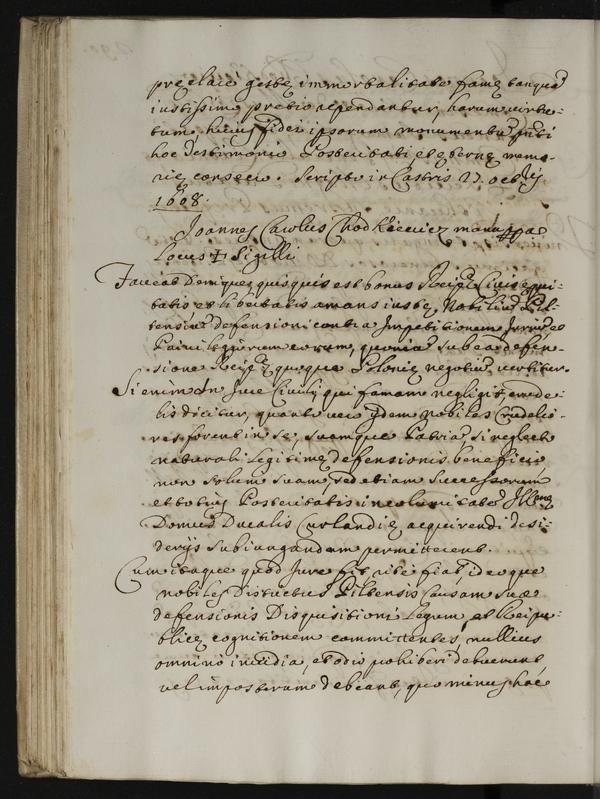 preclaré gestę immortalitate famę tanquã
iustissimo pretio rependantur, harum virtu-
tum, huius fidei ipsorum monumentũ
hoc Testimonio Posteritati et ęternę memo-
rię consecro. Scripto in Castris 27. octbris
1608.
Joannes Carolus Chodkiewicz manu ppa
Locus ☩ Sigilli
Faveat Deniques quisquis est bonus Reipę Civis equi-
tatis et libertatis amans iustę Nobiliũ Pil-
tensiũ defensioni contra Impetitionem
Privilegiorum eorum, quoniã sub ea defen-
sione Reipę quoque Polonię negotiũ vertitur.
Si enim in Jure Civili qui famam negligit, crude-
lis dicitur, quanto vero ijdem Nobiles Crudelio-
res forent in se, suamque Patriã, si neglecto
naturali legitimę defensionis beneficio
non solum suam, sed etiam Successorum
et totius Posteritatis incolumitatẽ Illmę
Domus Ducalis Curlandię acquirendi desi-
derijs subiungandam permitterent.
Cum itaque quod Jure fit, ritè fiat ideoque
nobiles Districtus Piltensis causam suæ
defensionis Disquisitioni Legum et Reipu-
blicę cognitionem committentes, nullius
omnino invidia, et odio prohiberi debuerunt
vel imposterum debeant, quo minus hac